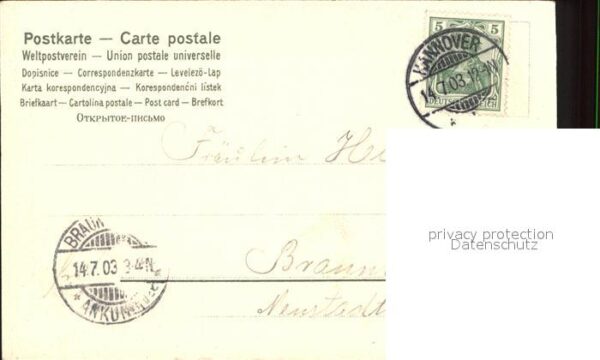 Postkarte — Carte postale
Weltpostverein — Union postale universelle
Dopisnice — Correspondenzkarte — Levelező-Lap
Karta korespondencyjna — Korespondenční lístek
Briefkaart — Cartolina postale — Post card — Brefkort
Открытое-письмо
5 5
DEUTSCHES REICH
HANNOVER
14.7.03.12-N
Fräulein
privacy protection
Datenschutz
BRAUN
14.7.03 3-4N.
* ANKUN
Braun
Neustedt